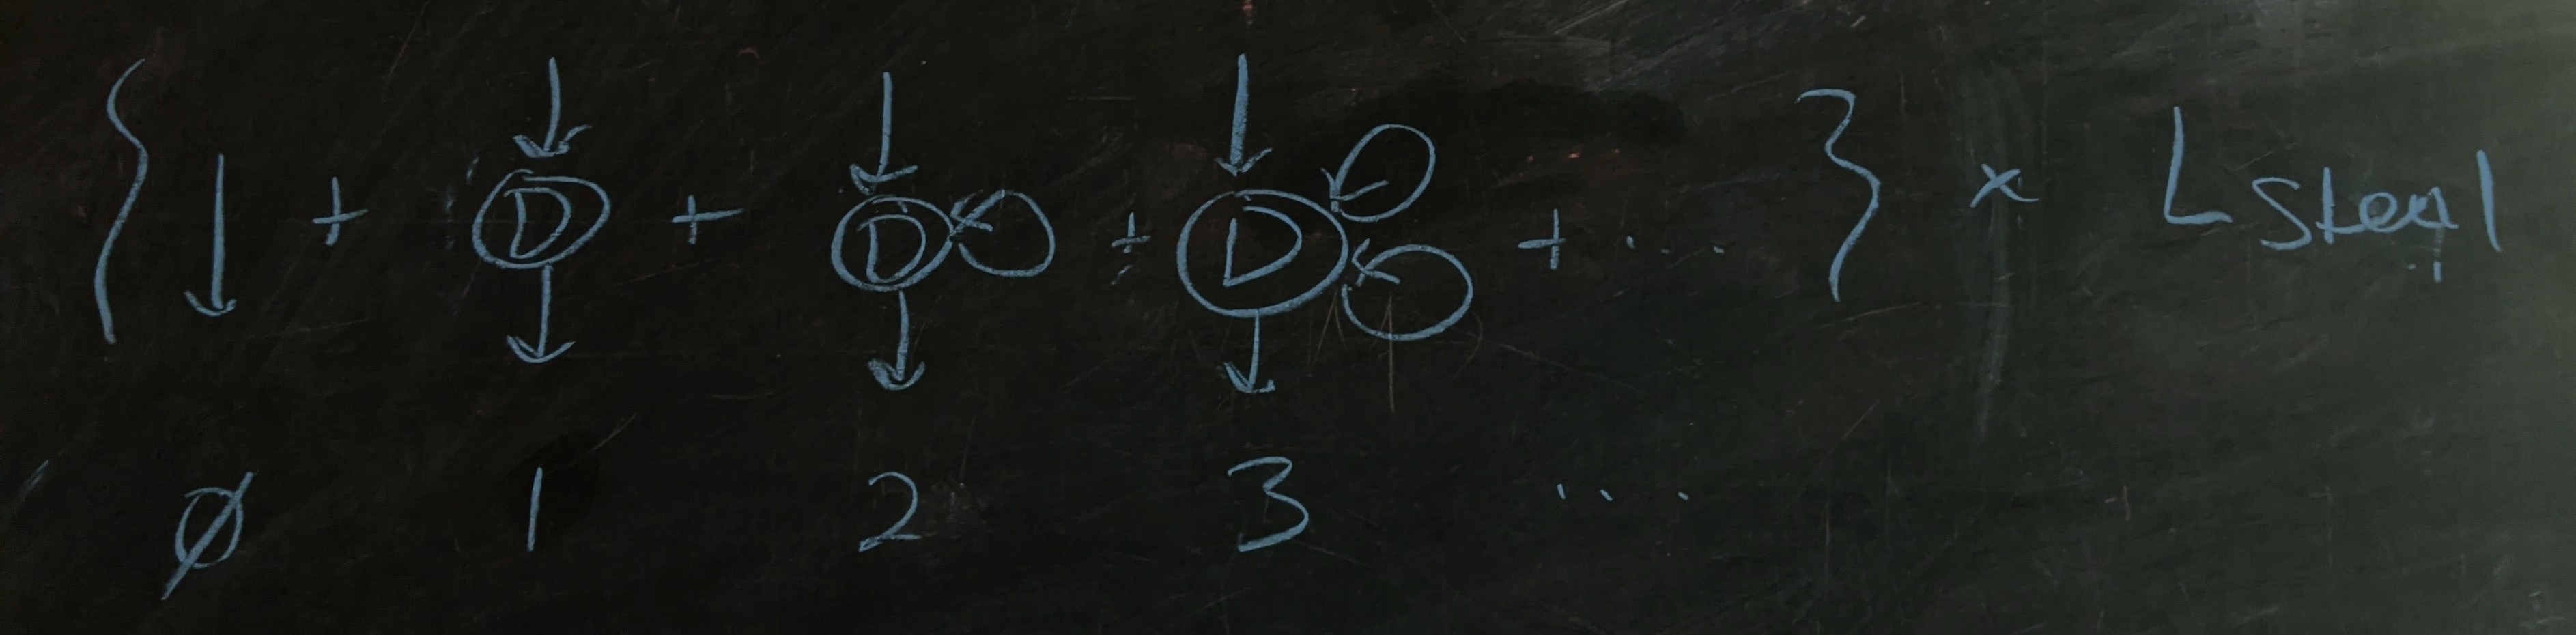 { ↓ + D + D + D + .... } × L Steal
∅ 1 2 3 ....